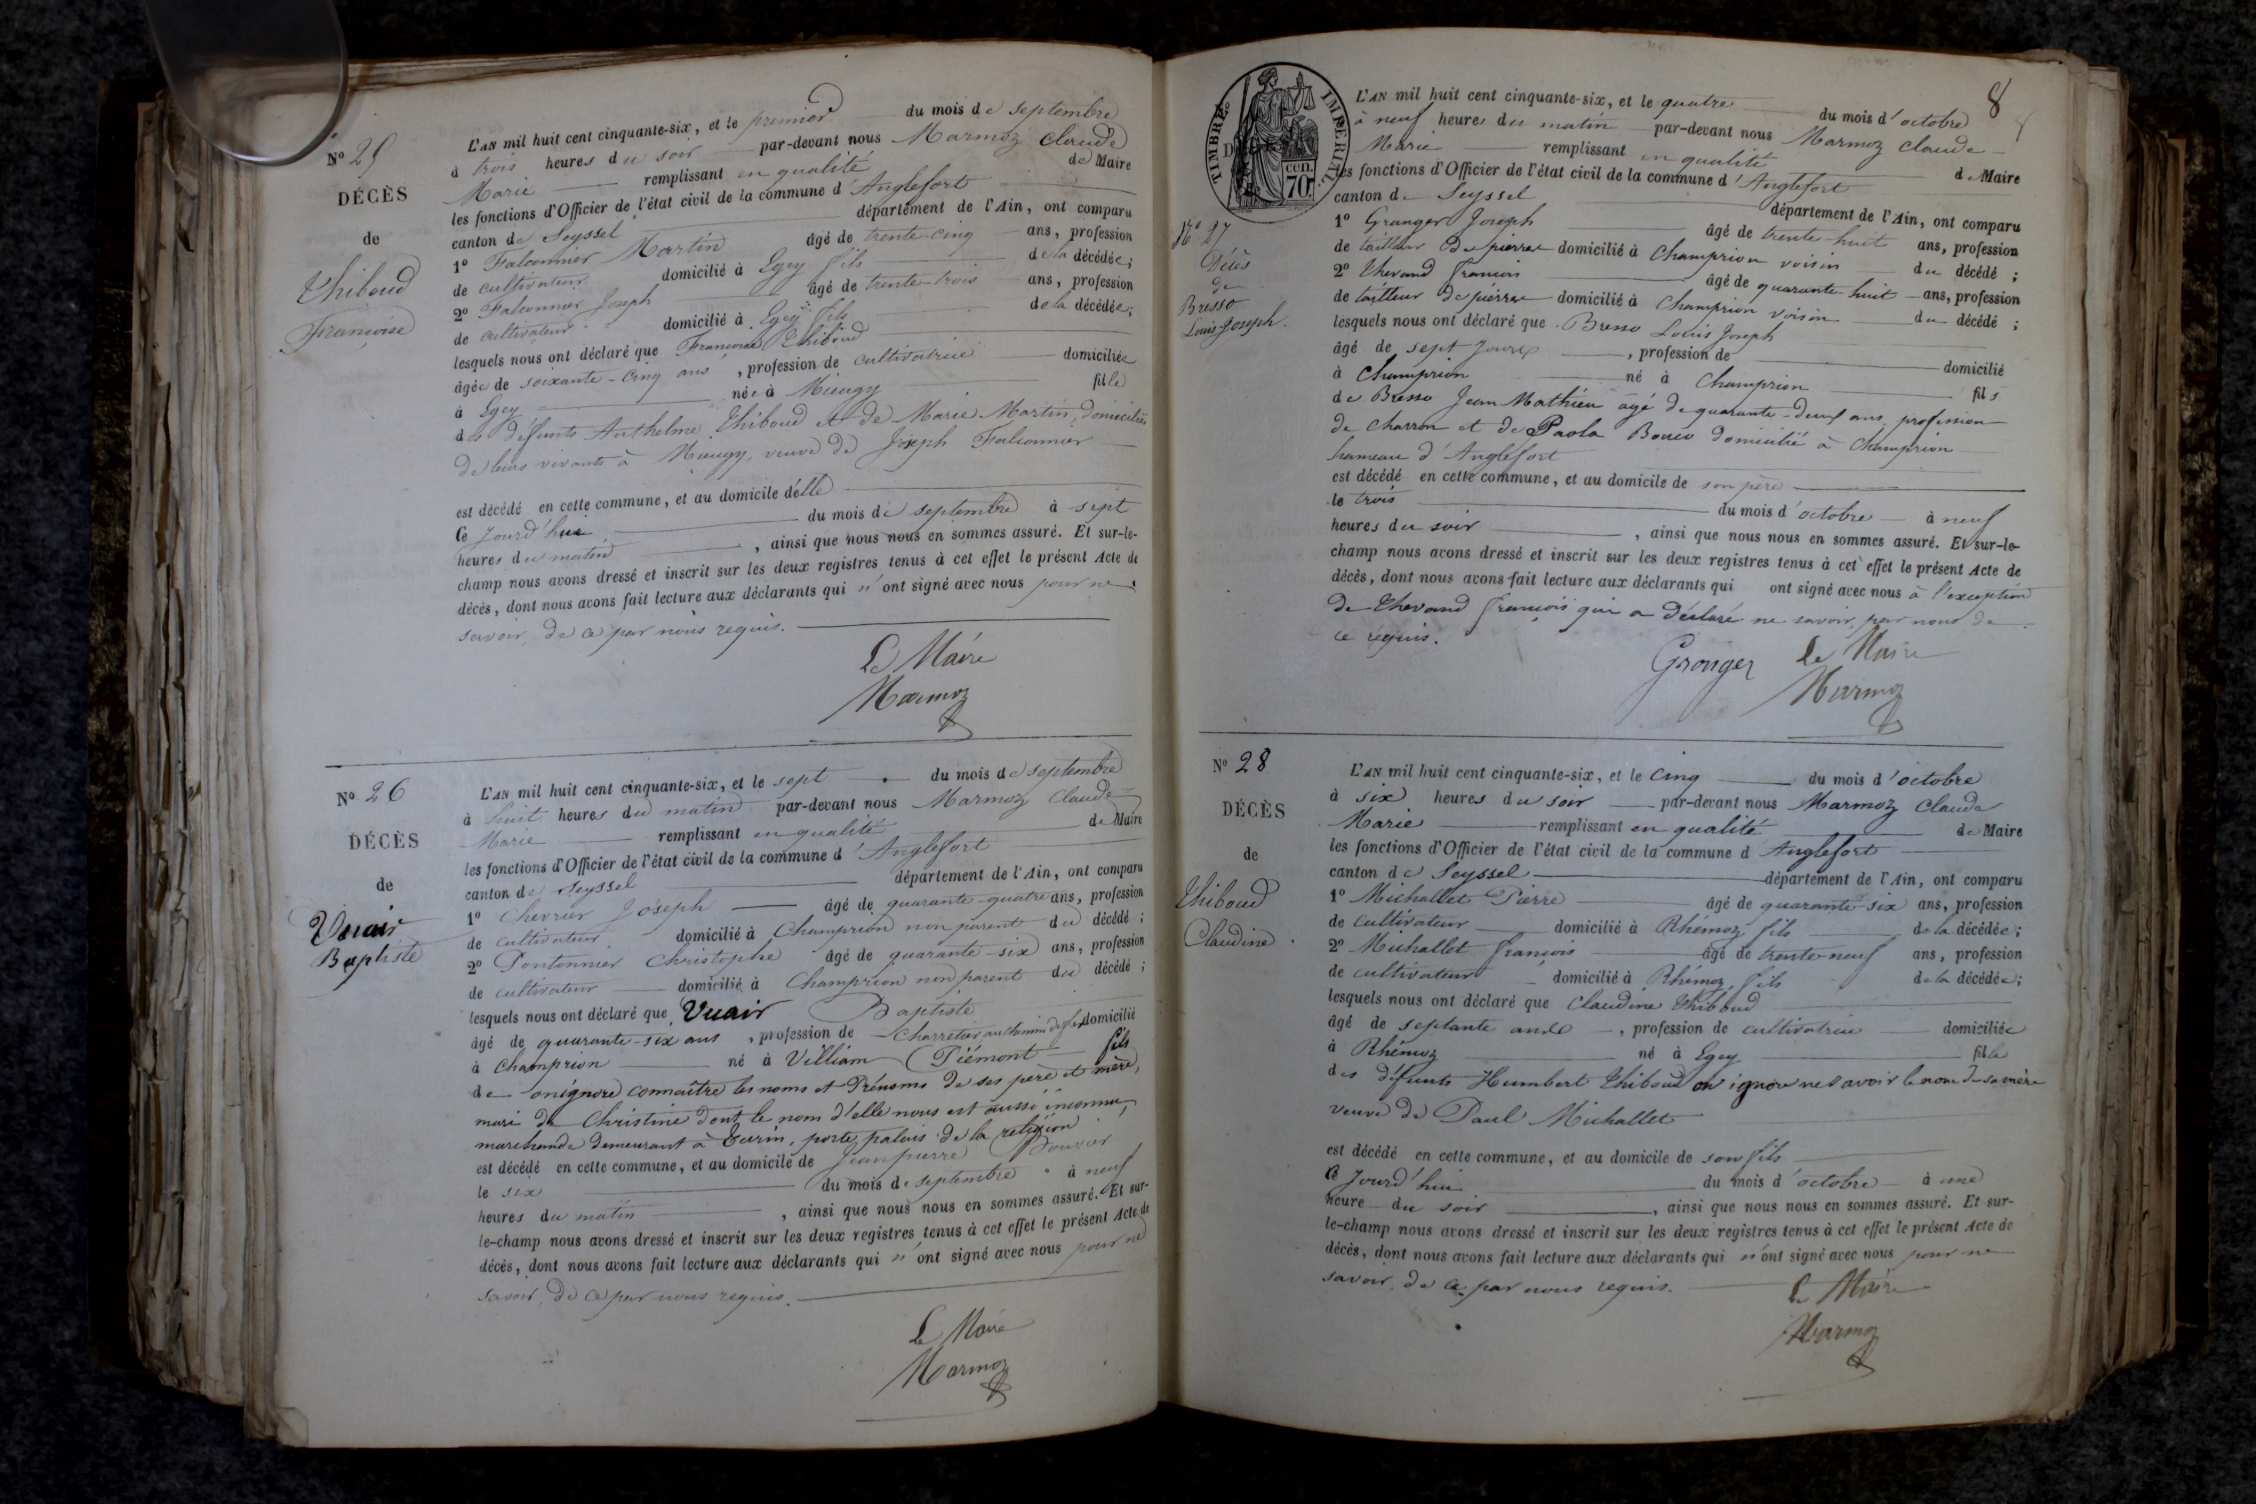 N° 25
DÉCÈS
de
Thiboud
Françoise
L'AN mil huit cent cinquante-six, et le premier du mois de septembre
à trois heures du soir par-devant nous Marmoz Claude
Marie remplissant en qualité de Maire
les fonctions d'Officier de l'état civil de la commune d'Anglefort
canton de Seyssel département de l'Ain, ont comparu
1° Falconnier Martin âgé de trente-cinq ans, profession
de cultivateur domicilié à Egey fils de la décédée;
2° Falconnier Joseph âgé de trente-trois ans, profession
de cultivateur domicilié à Egey fils de la décédée;
lesquels nous ont déclaré que Françoise Thiboud
âgée de soixante-cinq ans, profession de cultivatrice domiciliée
à Egey née à Mieugy fille
des défunts Anthelme Thiboud et de Marie Martin, domiciliés
de leurs vivants à Mieugy, veuve de Joseph Falconnier
est décédé en cette commune, et au domicile d'elle
Ce jourd'hui du mois de septembre à sept
heures du matin, ainsi que nous nous en sommes assuré. Et sur-le-
champ nous avons dressé et inscrit sur les deux registres tenus à cet effet le présent Acte de
décès, dont nous avons fait lecture aux déclarants qui n'ont signé avec nous pour ne
savoir, de ce par nous requis.
Le Maire
Marmoz
N° 26
DÉCÈS
de
Vuair
Baptiste
L'AN mil huit cent cinquante-six, et le sept du mois de septembre
à huit heures du matin par-devant nous Marmoz Claude
Marie remplissant en qualité de Maire
les fonctions d'Officier de l'état civil de la commune d'Anglefort
canton de Seyssel département de l'Ain, ont comparu
1° Chevrier Joseph âgé de quarante-quatre ans, profession
de cultivateur domicilié à Champrion non parent du décédé;
2° Pontonnier Christophe âgé de quarante-six ans, profession
de cultivateur domicilié à Champrion non parent du décédé;
lesquels nous ont déclaré que Vuair Baptiste
âgé de quarante-six ans, profession de Charretier au chemin de fer domicilié
à Champrion né à Villiam (Piémont fils
de on ignore connaître les noms et Prénoms de ses père et mère,
mari de Christine dont le nom d'elle nous est aussi inconnu,
marchande demeurant à Turin, porte palais de la religion
est décédé en cette commune, et au domicile de Jean pierre Bouvier
le six du mois de septembre à neuf
heures du matin, ainsi que nous nous en sommes assuré. Et sur-
le-champ nous avons dressé et inscrit sur les deux registres tenus à cet effet le présent Acte de
décès, dont nous avons fait lecture aux déclarants qui n'ont signé avec nous pour ne
savoir, de ce par nous requis.
Le Maire
Marmoz
8
TIMBRE IMPÉRIAL.
70 cen.
N° 27
Décès
de
Bresso
Louis Joseph.
L'AN mil huit cent cinquante-six, et le quatre du mois d'octobre
à neuf heures du matin par-devant nous Marmoz Claude
Marie remplissant en qualité de Maire
les fonctions d'Officier de l'état civil de la commune d'Anglefort
canton de Seyssel département de l'Ain, ont comparu
1° Granger Joseph âgé de trente-huit ans, profession
de tailleur de pierre domicilié à Champrion voisin du décédé;
2° Thevand François âgé de quarante-huit ans, profession
de tailleur de pierre domicilié à Champrion voisin du décédé;
lesquels nous ont déclaré que Bresso Louis Joseph
âgé de sept jours, profession de domicilié
à Champrion né à Champrion fils
de Bresso Jean Mathieu âgé de quarante-deux ans, profession
de charron et de Paola domicilié à Champrion
hameau d'Anglefort
est décédé en cette commune, et au domicile de son père
le trois du mois d'octobre à neuf
heures du soir, ainsi que nous nous en sommes assuré. Et sur-le-
champ nous avons dressé et inscrit sur les deux registres tenus à cet effet le présent Acte de
décès, dont nous avons fait lecture aux déclarants qui ont signé avec nous à l'exception
de Thevand François qui a déclaré ne savoir, par nous de
ce requis.
Granger Le Maire
Marmoz
N° 28
DÉCÈS
de
Thiboud
Claudine.
L'AN mil huit cent cinquante-six, et le cinq du mois d'octobre
à six heures du soir par-devant nous Marmoz Claude
Marie remplissant en qualité de Maire
les fonctions d'Officier de l'état civil de la commune d'Anglefort
canton de Seyssel département de l'Ain, ont comparu
1° Michallet Pierre âgé de quarante-six ans, profession
de cultivateur domicilié à Rhémoz, fils de la décédée;
2° Michallet François âgé de trente-neuf ans, profession
de cultivateur domicilié à Rhémoz, fils de la décédée;
lesquels nous ont déclaré que Claudine Thiboud
âgé de septante ans, profession de cultivatrice domiciliée
à Rhémoz né à Egey fille
des défunts Humbert Thiboud on ignore ne savoir le nom de sa mère
veuve de Paul Michallet
est décédé en cette commune, et au domicile de son fils
Ce jourd'hui du mois d'octobre à une
heure du soir, ainsi que nous nous en sommes assuré. Et sur-
le-champ nous avons dressé et inscrit sur les deux registres tenus à cet effet le présent Acte de
décès, dont nous avons fait lecture aux déclarants qui n'ont signé avec nous pour ne
savoir, de ce par nous requis.
Le Maire
Marmoz